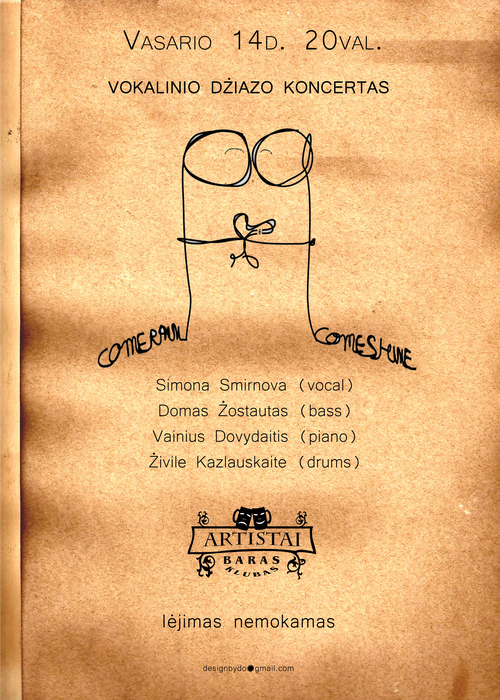 VASARIO 14D. 20VAL.
VOKALINIO DŽIAZO KONCERTAS
COMERAIN COMESHINE
Simona Smirnova (vocal)
Domas Žostautas (bass)
Vainius Dovydaitis (piano)
Živile Kazlauskaite (drums)
ARTISTAI
BARAS
KLUBAS
Iėjimas nemokamas
designbydo@gmail.com